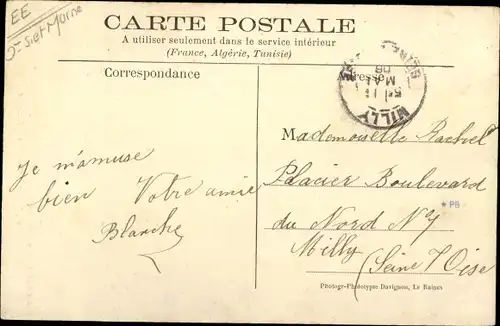 EE
S-et-Marne
CARTE POSTALE
A utiliser seulement dans le service intérieur
(France, Algérie, Tunisie)
Correspondance
Adresse
MILLY
MAI
Mademoiselle Rachel
Placier Boulevard
du Nord No
Milly
(Seine & Oise
Je m'amuse
bien Votre amie
Blanche
* PB
Photogr-Phototypie Davignon, Le Raincy